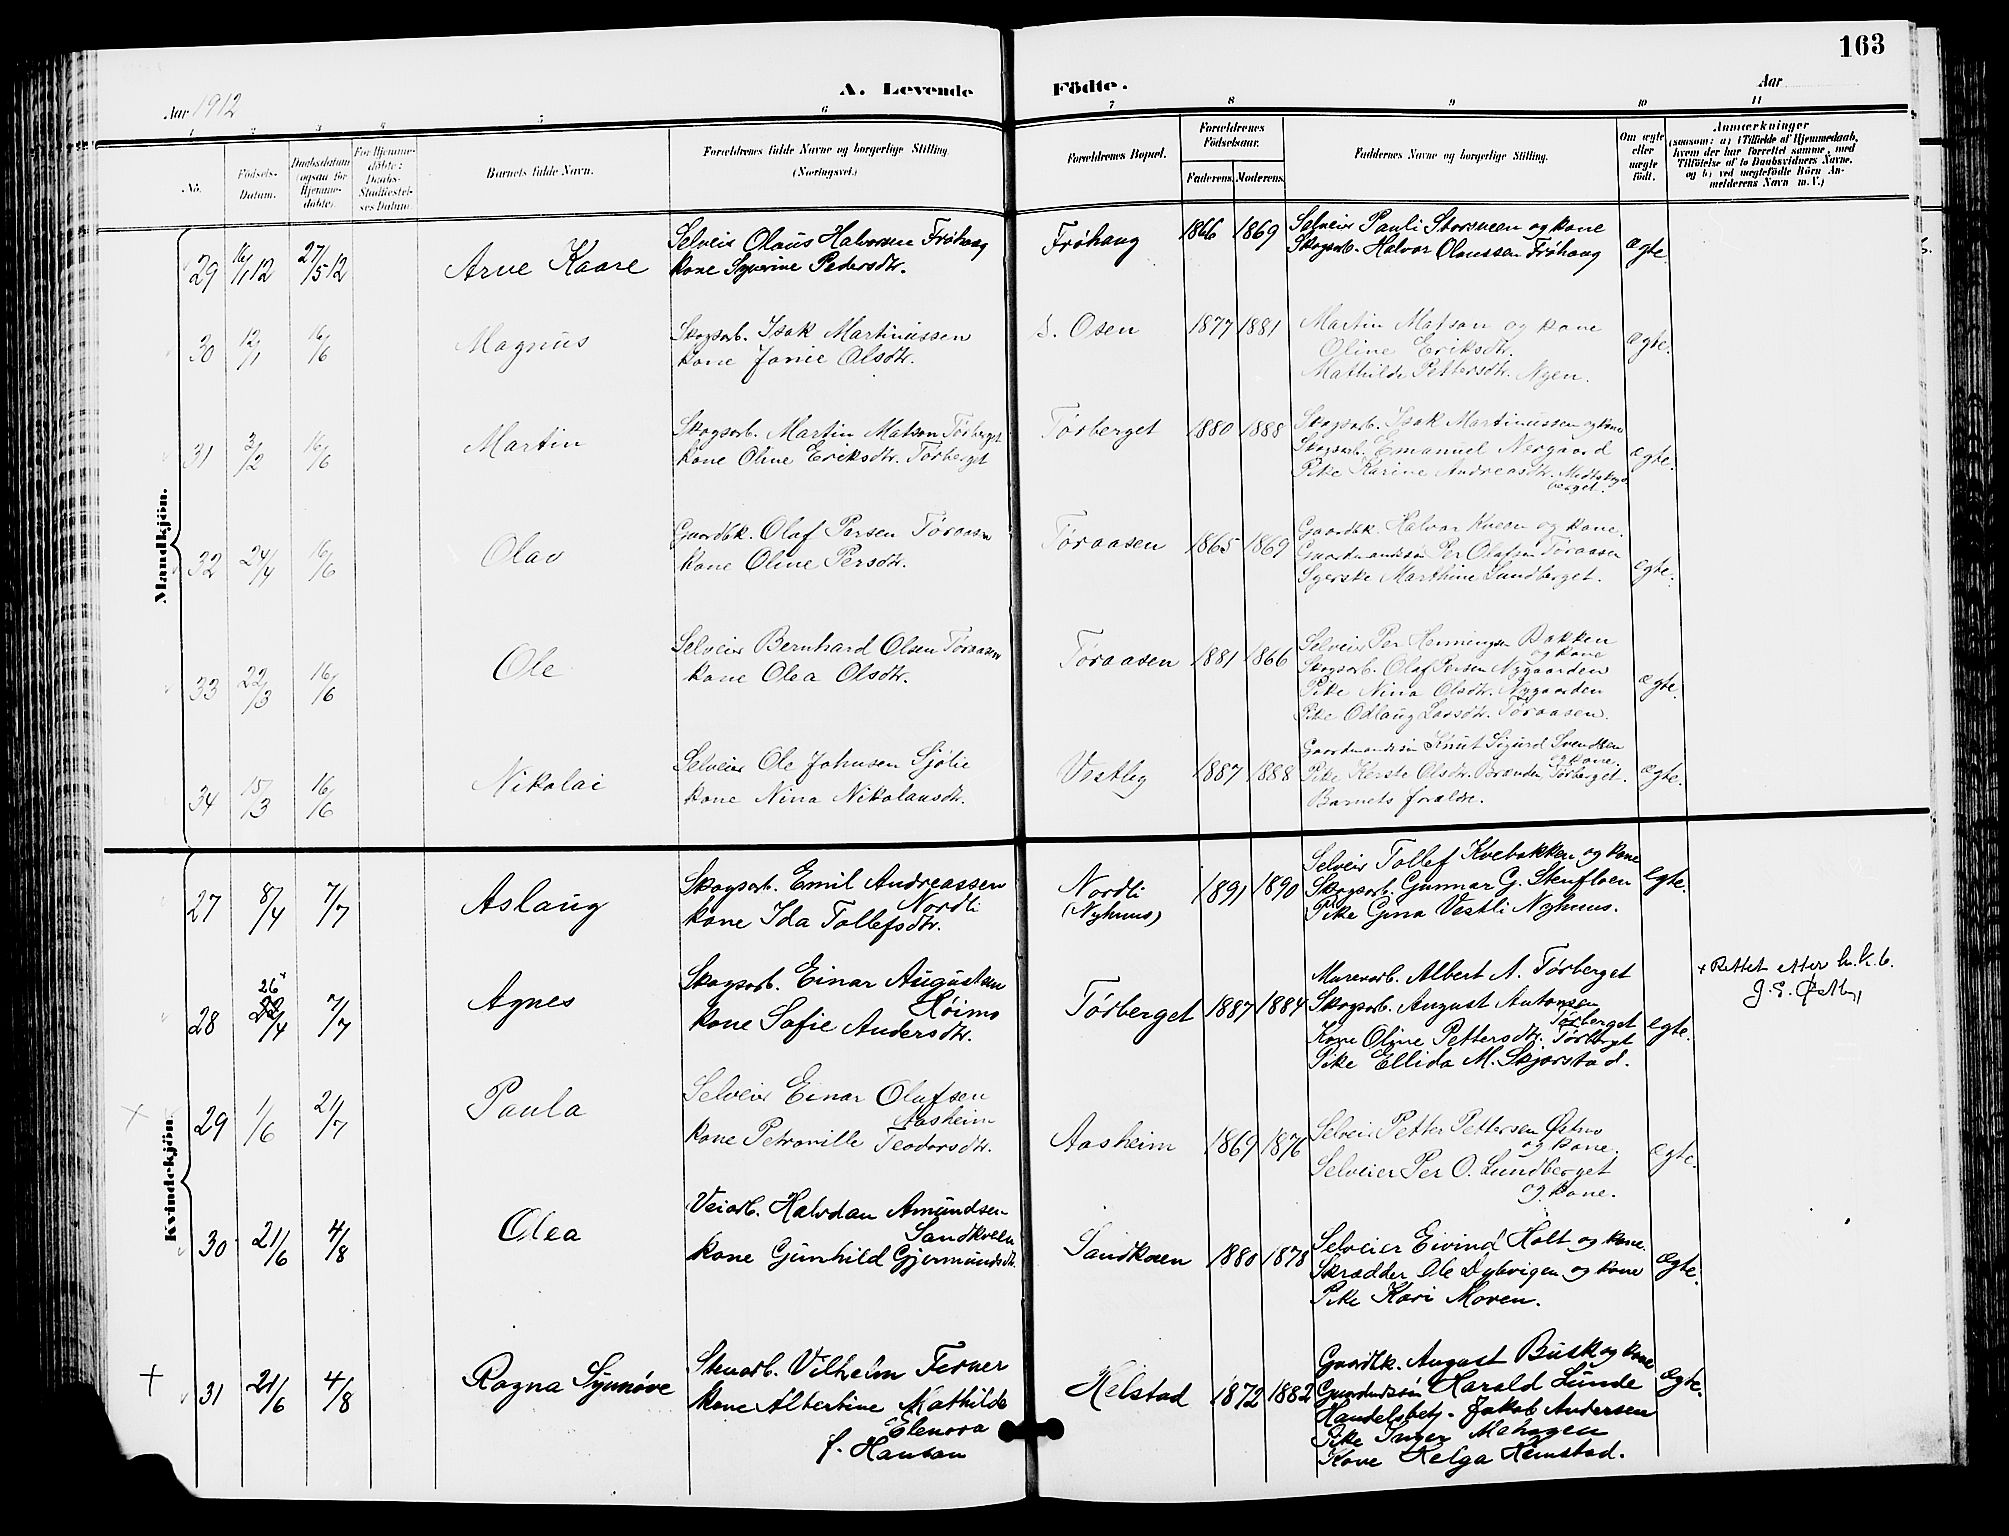 163
A. Levende Födte.
Aar 1912
Aar
1 2 3 4 5 6 7 8 9 10 11
No.
Födsels-Datum.
Daabsdatum (ogsaa for Hjemme-döbte).
For Hjemme-döbte: Daabs-Stadfæstel-ses Datum.
Barnets fulde Navn.
Forældrenes fulde Navne og borgerlige Stilling (Næringsvei.)
Forældrenes Bopæl.
Forældrenes Födselsaar.
Faderens. Moderens.
Faddernes Navne og borgerlige Stilling.
Om ægte eller uægte födt.
Anmærkninger
(saasom: a) i Tilfælde af Hjemmedaab,
hvem der har forrettet samme, med
Tilföielse af to Daabsvidners Navne,
og b) ved uægtefödte Börn An-
melderens Navn m. V.)
Mandkjön.
29 16/1 12 27/5 12 Arve Kaare
Selveier Olaus Halvorsen Frøhaug
kone Syverine Pedersdtr.
Frøhaug 1866 1869
Selveier Pauli Storsveen og kone
Skogsarb. Halvor Olaussen Frøhaug
ægte.
30 12/1 16/6 Magnus
Skogsarb. Isak Martinussen
kone Jonie Olsdtr.
S. Osen 1877 1881
Martin Matson og kone
Oline Eriksdtr.
Mathilde Pettersdtr. Nyen.
ægte.
31 3/2 16/6 Martin
Skogsarb. Martin Matson Tørberget
kone Oline Eriksdtr. Tørberget
Tørberget 1880 1888
Skogsarb. Isak Martinussen og kone
Skogsarb. Emanuel Nergaard
Pike Karine Andreasdtr. Midtskog-
berget.
ægte.
32 24/4 16/6 Olav
Gaardbk. Olaf Persen Tøraasen
kone Oline Persdtr.
Tøraasen 1865 1869
Gaardbk. Halvor Kveen og kone.
Gaardmandssøn Per Olafsen Tøraasen
Syerske Marthine Lundberget.
ægte.
33 22/3 16/6 Ole
Selveier Bernhard Olsen Tøraasen
kone Olea Olsdtr.
Tøraasen 1881 1866
Selveier Per Henningsen Bakken
og kone
Skogsarb. Olaf Persen Nygaarden
Pike Nina Olsdtr. Nygaarden
Pike Odlaug Larsdtr. Tøraasen.
ægte.
34 15/3 16/6 Nikolai
Selveier Ole Johnsen Sjølie
kone Nina Nikolausdtr.
Vestby 1887 1888
Gaardmandssøn Knut Sigurd Svendsen
og kone.
Pike Kerste Olsdtr. Brænden Tørberget.
Barnets forældre.
ægte.
Kvindekjön.
27 8/4 7/7 Aslaug
Skogsarb. Emil Andreassen
Nordli
kone Ida Tollefsdtr.
Nordli
(Nyhuus)
1891 1890
Selveier Tollef Kvebakken og kone
Skogsarb. Gunnar G. Stenfloen
Pike Gina Vestli Nyhuus.
ægte.
28 26/4 7/7 Agnes
Skogsarb. Einar Augustsen
Høimo
kone Sofie Andersdtr.
Tørberget 1887 1884
Murerarb. Albert A. Tørberget
Skogsarb. August Antonsen
Tørberget
Kone Oline Pettersdtr. Tørberget
Pike Ellida M. Skjærstad.
ægte.
+ Rettet etter h.k.b.
J. E. Østby
+ 29 1/6 21/7 Paula
Selveier Einar Olafsen
Aasheim
kone Petronille Teodorsdtr.
Aasheim 1869 1876
Selveier Petter Pettersen Østmo
og kone.
Selveier Per O. Lundberget
og kone.
ægte.
30 21/6 4/8 Olea
Veiarb. Halvdan Amundsen
Sandkveen
kone Gunhild Gjermundsdtr.
Sandkveen 1880 1878
Selveier Eivind Holt og kone.
Skrædder Ole Dybvigen og kone
Pike Kari Moren.
Ægte.
+ 31 21/6 4/8 Ragna Synnøve
Stenarb. Vilhelm Ferner
kone Albertine Mathilde
Elenora
f. Hansen
Kelstad 1872 1882
Gaardbk. August Busk og kone
Gaardmdssøn Harald Lunde
Handelsbetj. Jakob Andersen
Pike Inger Mehagen
Kone Helga Hemstad.
Ægte.